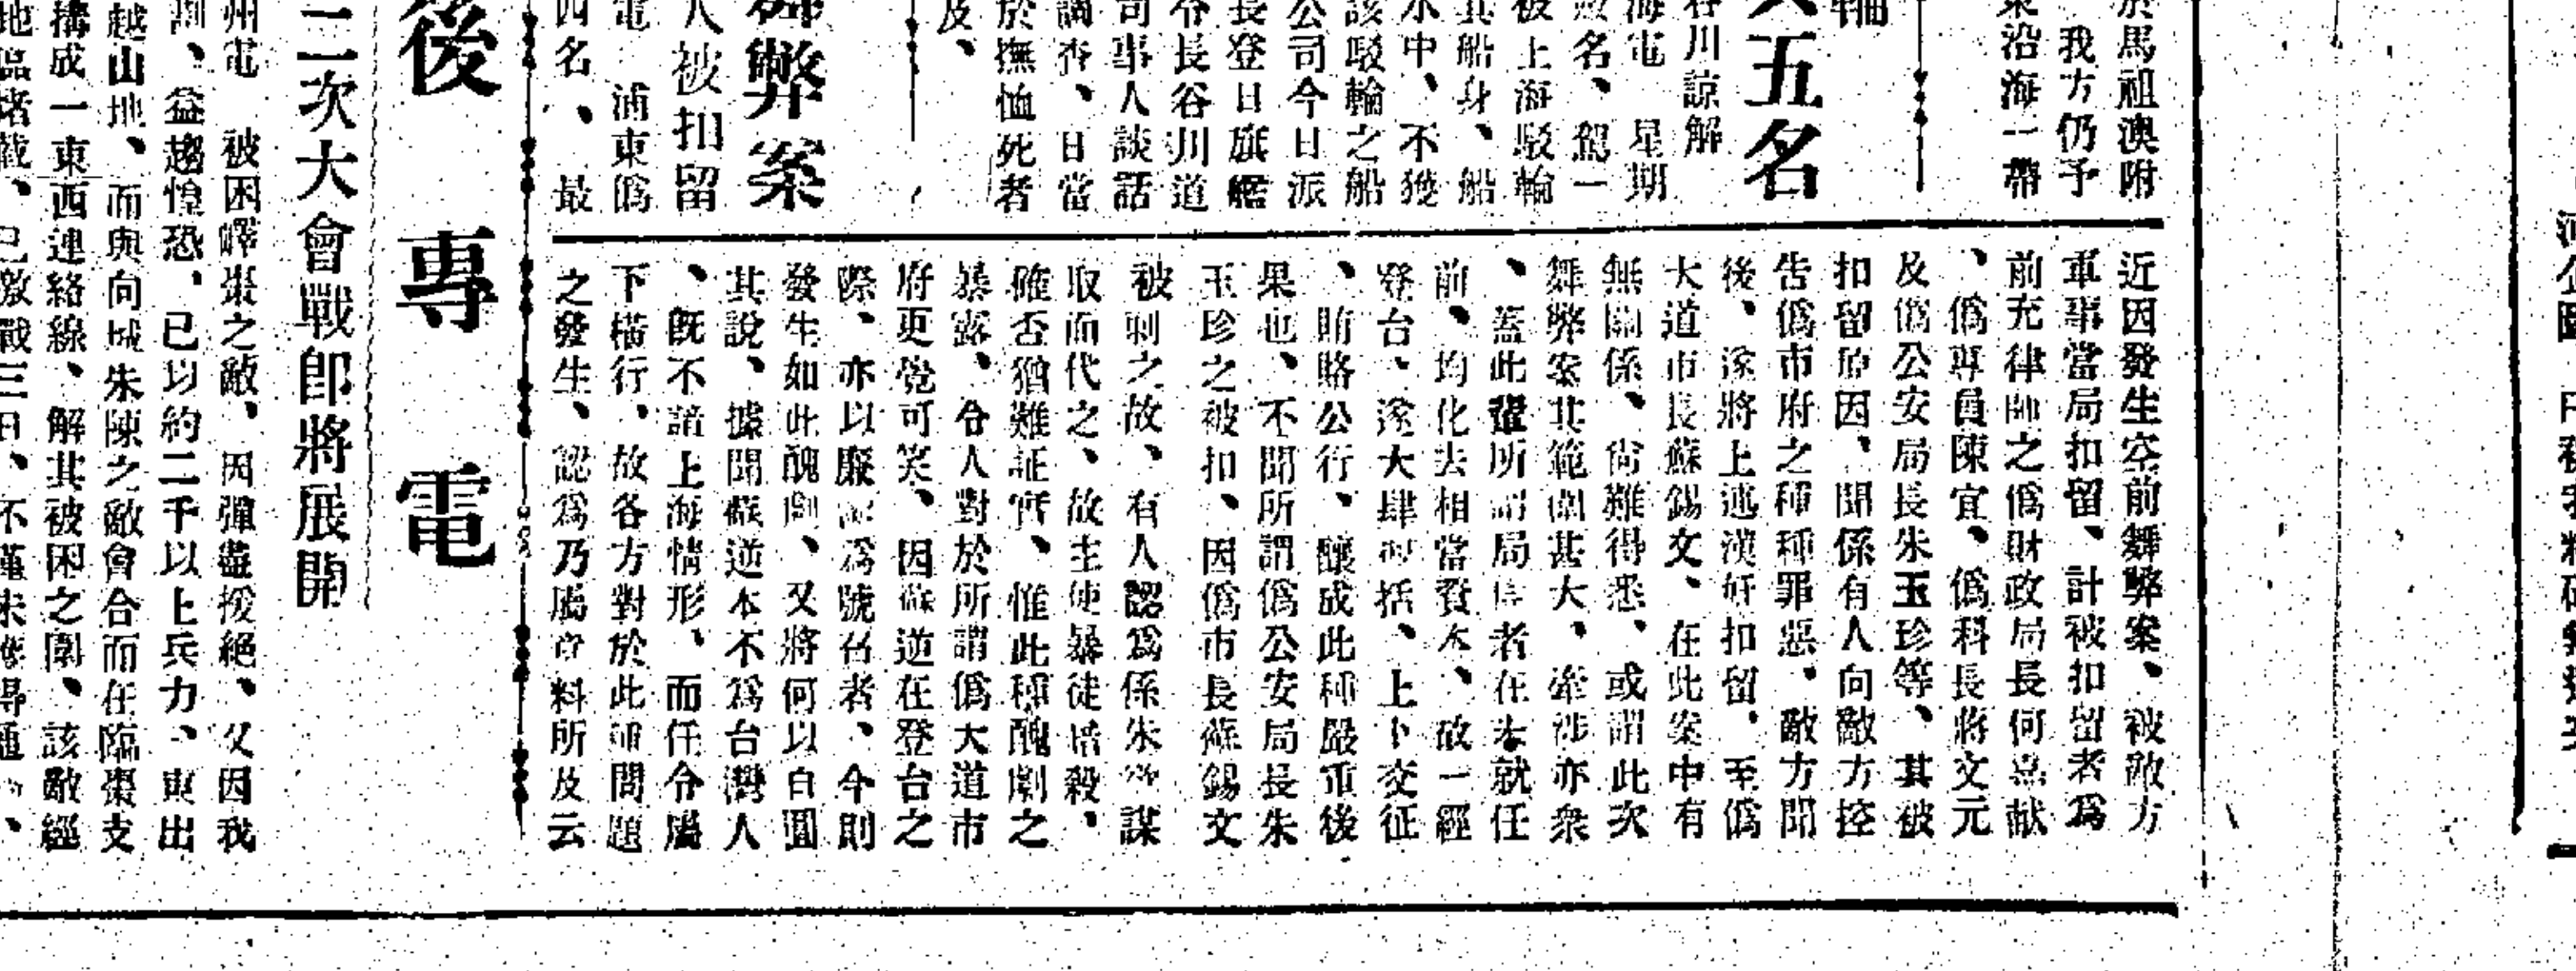 於馬祖澳附
我方仍予
東沿海一帶
輪
人五名
谷川諒解
海電　星期
數名、駕一
被上海駁輪
其船身、船
水中、不獲
該駁輪之船
公司今日派
長登日旗艦
谷長谷川道
司事人談話
調查、日當
於撫恤死者
及、
舞弊案
人被扣留
電　浦東僞
四名、最
近因發生空前舞弊案、被敵方
軍事當局扣留、計被扣留者爲
前充律師之僞財政局長何嘉献
、僞專員陳宜、僞科長蔣文元
及僞公安局長朱玉珍等、其被
扣留原因、聞係有人向敵方控
告僞市府之種種罪惡、敵方聞
後、遂將上述漢奸扣留、至僞
大道市長蘇錫文、在此案中有
無關係、尙難得悉、或謂此次
舞弊案其範圍甚大、牽涉亦衆
、蓋此輩所謂局長者在未就任
前、均化去相當賚本、故一經
登台、遂大肆搜括、上下交征
、賄賂公行、釀成此種嚴重後
果也、不聞所謂僞公安局長朱
玉珍之被扣、因僞市長蘇錫文
被刺之故、有人認爲係朱欲謀
取而代之、故主使暴徒暗殺、
確否猶難証實、惟此種醜劇之
暴露、令人對於所謂僞大道市
府更覺可笑、因蘇逆在登台之
際、亦以廉潔爲號召者、今則
發生如此醜劇、又將何以自圓
其說、據聞蘇逆本不爲台灣人
、旣不諳上海情形、而任令屬
下橫行、故各方對於此種問題
之發生、認爲乃屬意料所及云
後　專　電
二次大會戰卽將展開
州電　被困嶧棗之敵、因彈盡援絕、又因我
、益趨惶恐、已均約二千以上兵力、東出
越山地、而與向城朱陳之敵會合而在臨棗支
構成一東西連絡線、解其被困之圍、該敵經
地區堵截、已激戰三日、不僅未獲得逞、